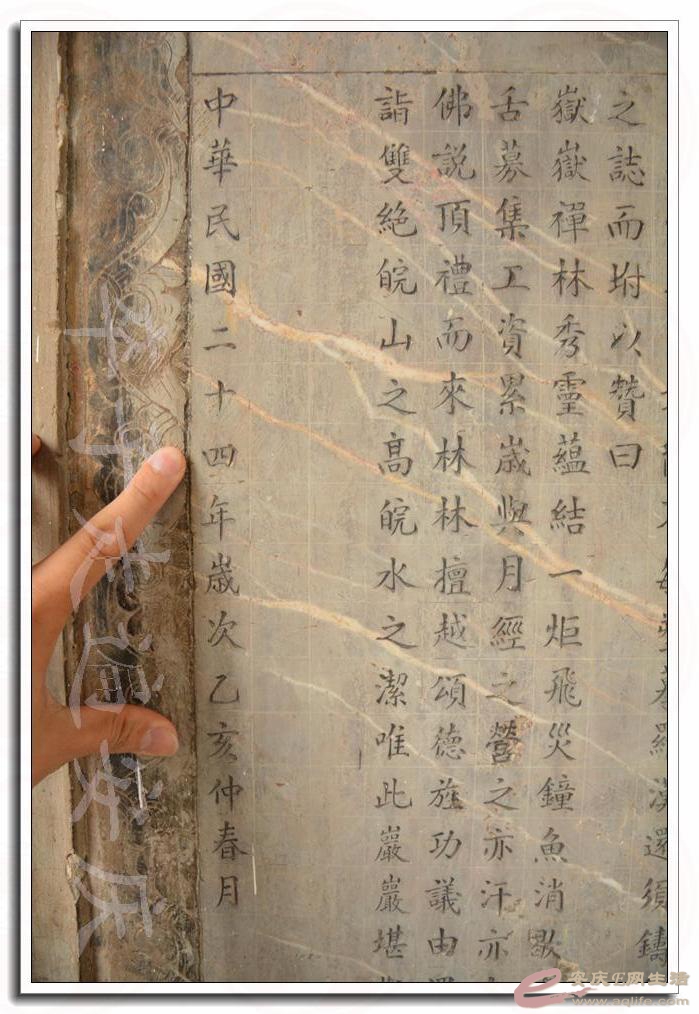 羅漢還須鑄
之誌而坿以贊曰
嶽嶽禪林秀靈蘊結一炬飛災鐘魚消歇
舌募集工資累歲與月經之營之亦汗亦
佛説頂禮而來林林擅越頌德旌功議由
詣雙絶皖山之高皖水之潔唯此巖巖堪
中華民國二十四年歲次乙亥仲春月
牵手走遍安庆
安庆E网生活
www.aqlife.com